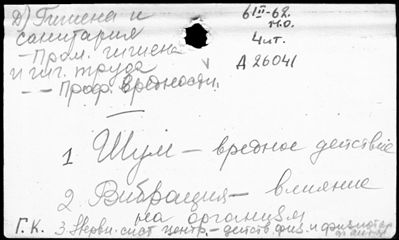 д) Гигиена и
санитария
– Пром. гигиена
и гиг. труда
– – Проф. вредности.
6 III–62.
М.О.
4 чит.
V
А 26041
1 Шум – вредное действие
2 Вибрация – влияние
на организм
Г.К. 3 Нервн. сист центр. – действ. физ. и